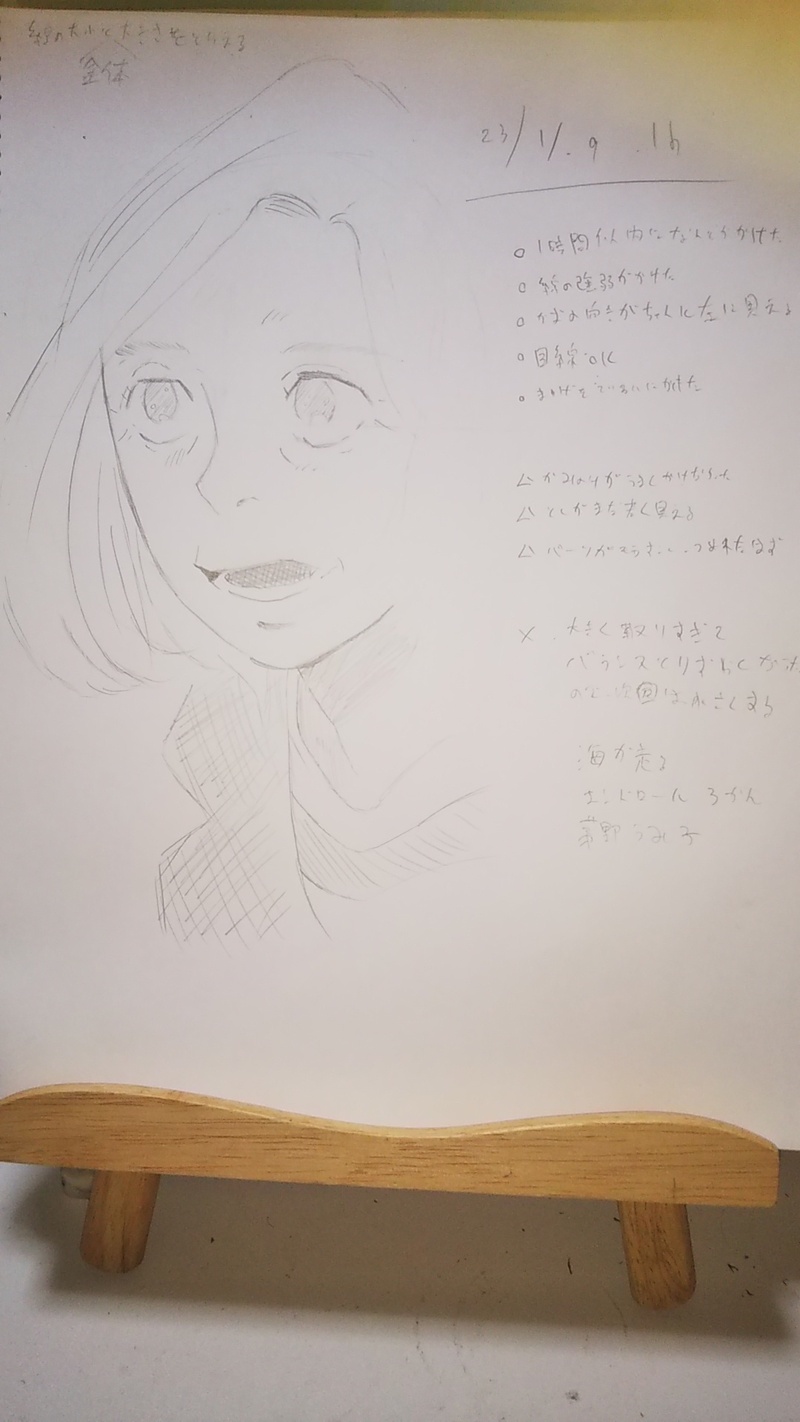 線の大小と大きさをとらえる
全体
23/1/.9 .1h
○ 1時間以内になんとかかけた
○ 線の強弱がかけた
○ かおの向きがちゃんと左に見える
○ 目線OK
○ まつげをていねいにかけた
△ かみのけがうまくかけなかった
△ としがまだ若く見える
△ パーツが
×.大きく取りすぎて
バランスとりずらくなった
ので次回は小さくする
海が走る
エンドロール
茅野うみ子